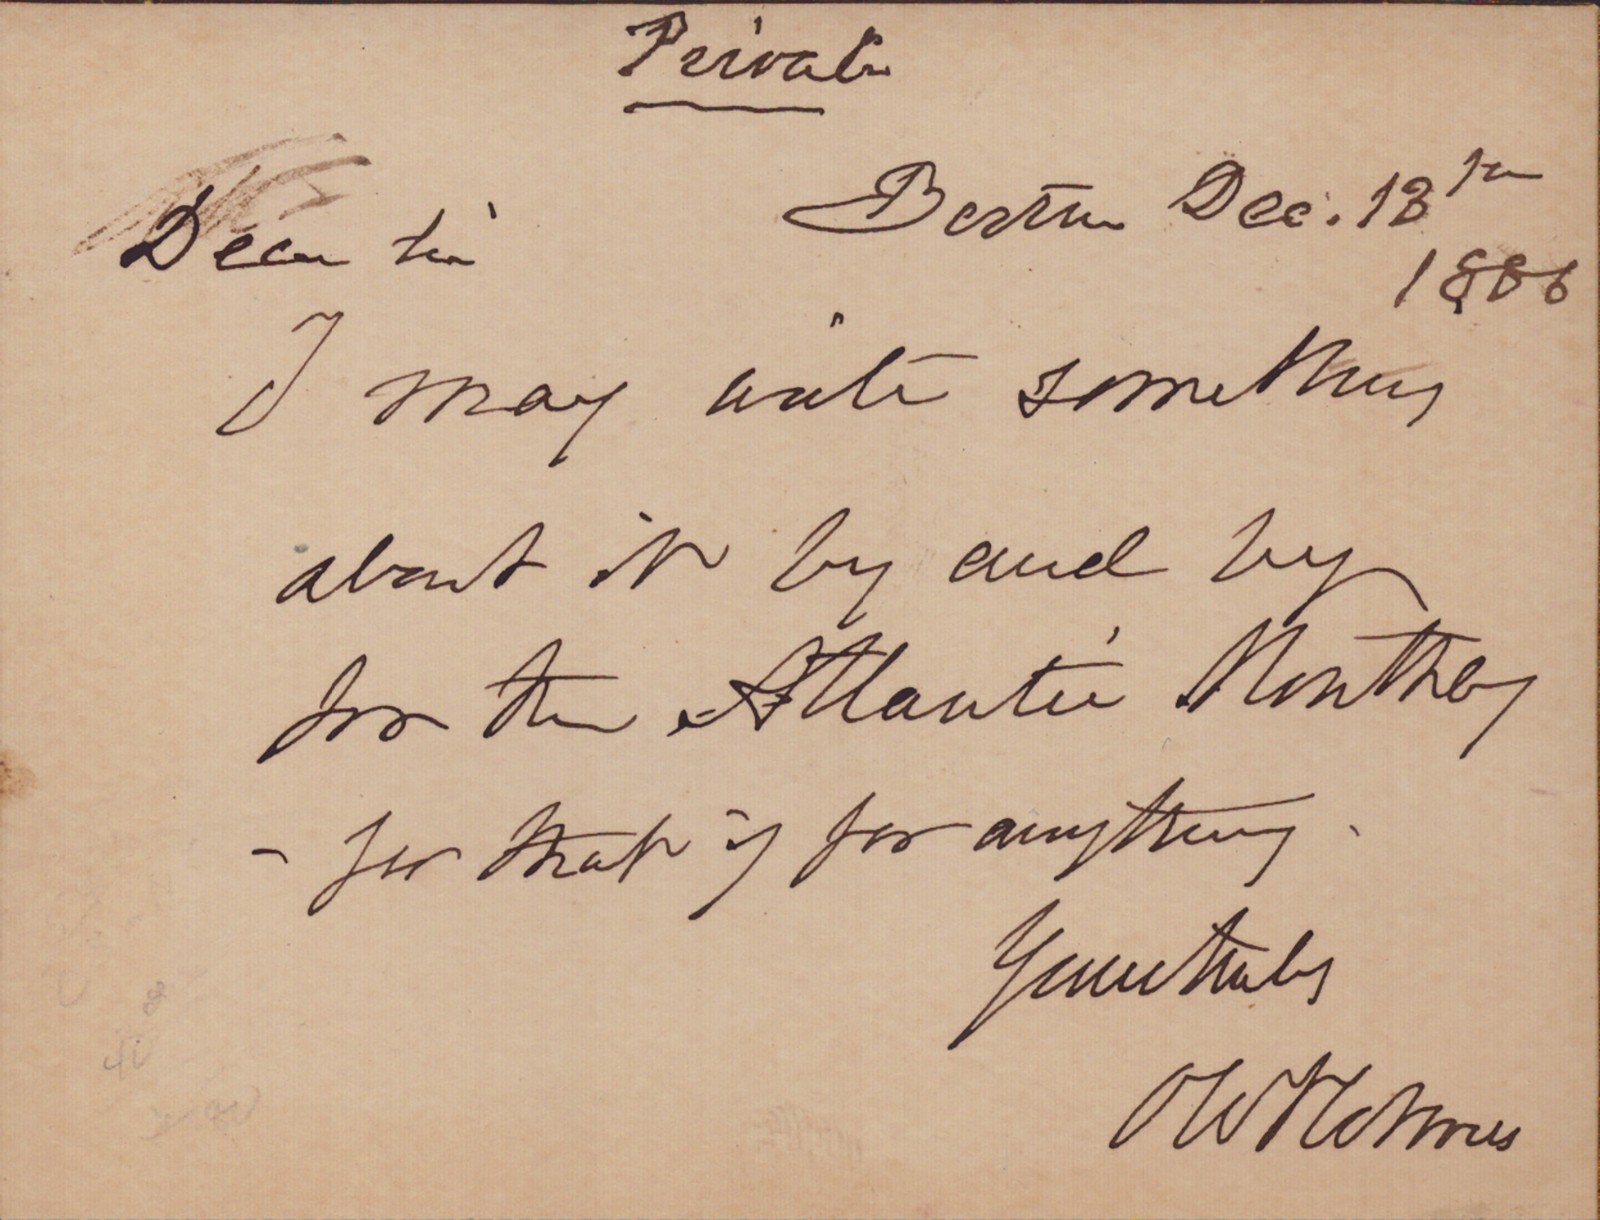 Private
Boston Dec. 13th
1886
Dear Sir
I may write something
about it by and by
for the Atlantic Monthly
- for that if for anything.
Yours truly
O W Holmes